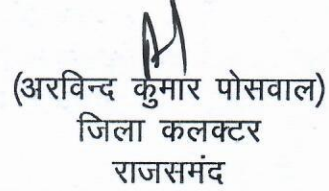 (अरविन्द कुमार पोसवाल)
जिला कलक्टर
राजसमंद